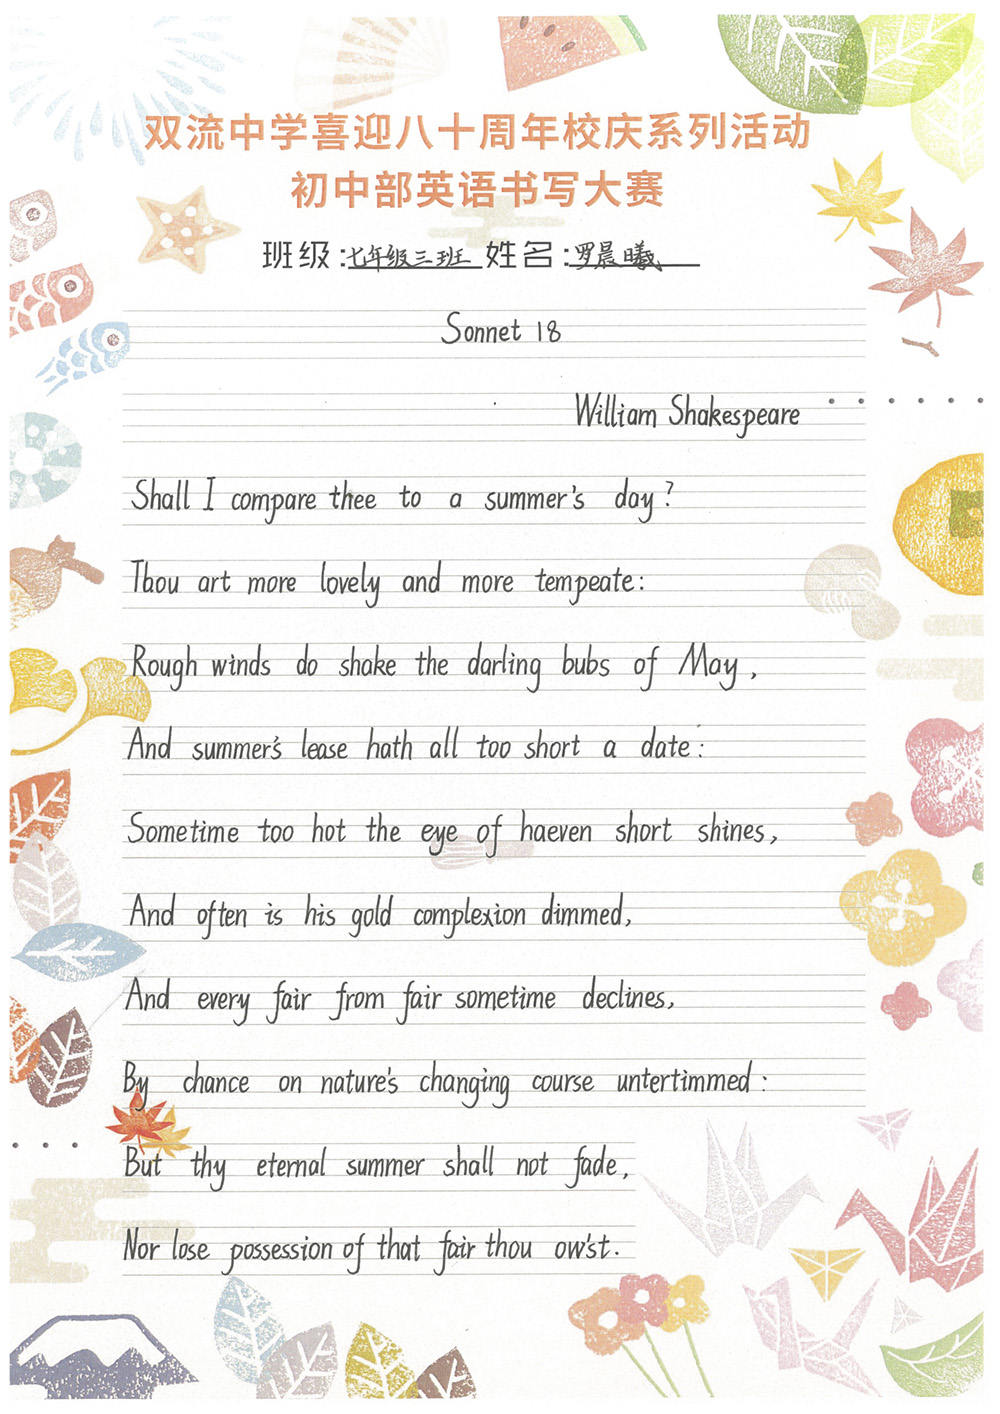 双流中学喜迎八十周年校庆系列活动
初中部英语书写大赛
班级:七年级三班 姓名:罗晨曦
Sonnet 18
William Shakespeare
Shall I compare thee to a summer's day?
Thou art more lovely and more tempeate:
Rough winds do shake the darling bubs of May,
And summer's lease hath all too short a date:
Sometime too hot the eye of haeven short shines,
And often is his gold complexion dimmed,
And every fair from fair sometime declines,
By chance on nature's changing course untertimmed:
But thy eternal summer shall not fade,
Nor lose possession of that fair thou ow'st.